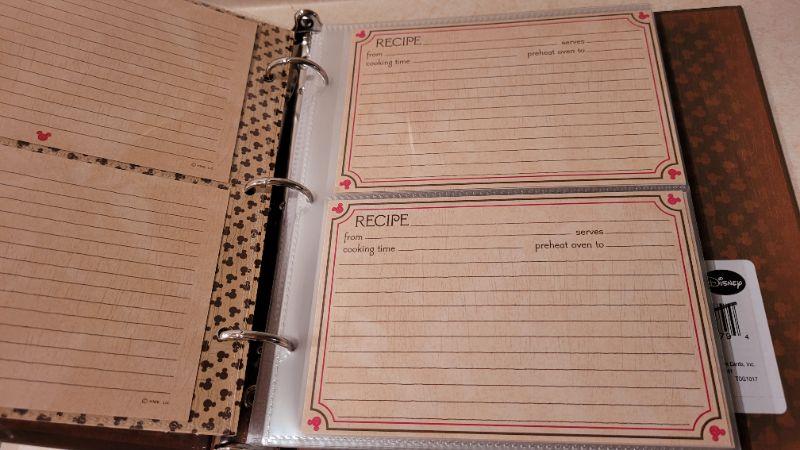 RECIPE
from serves
cooking time preheat oven to
RECIPE
from serves
cooking time preheat oven to
DISNEY
79 4
Cards, Inc.
TDG1017